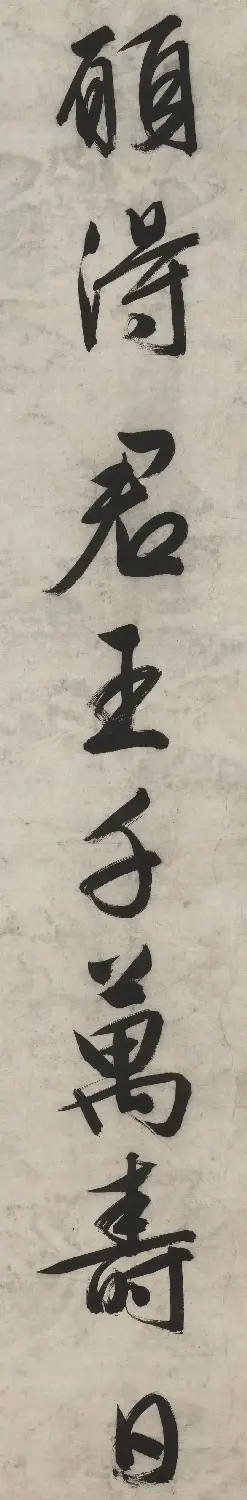 願得君王千萬壽日